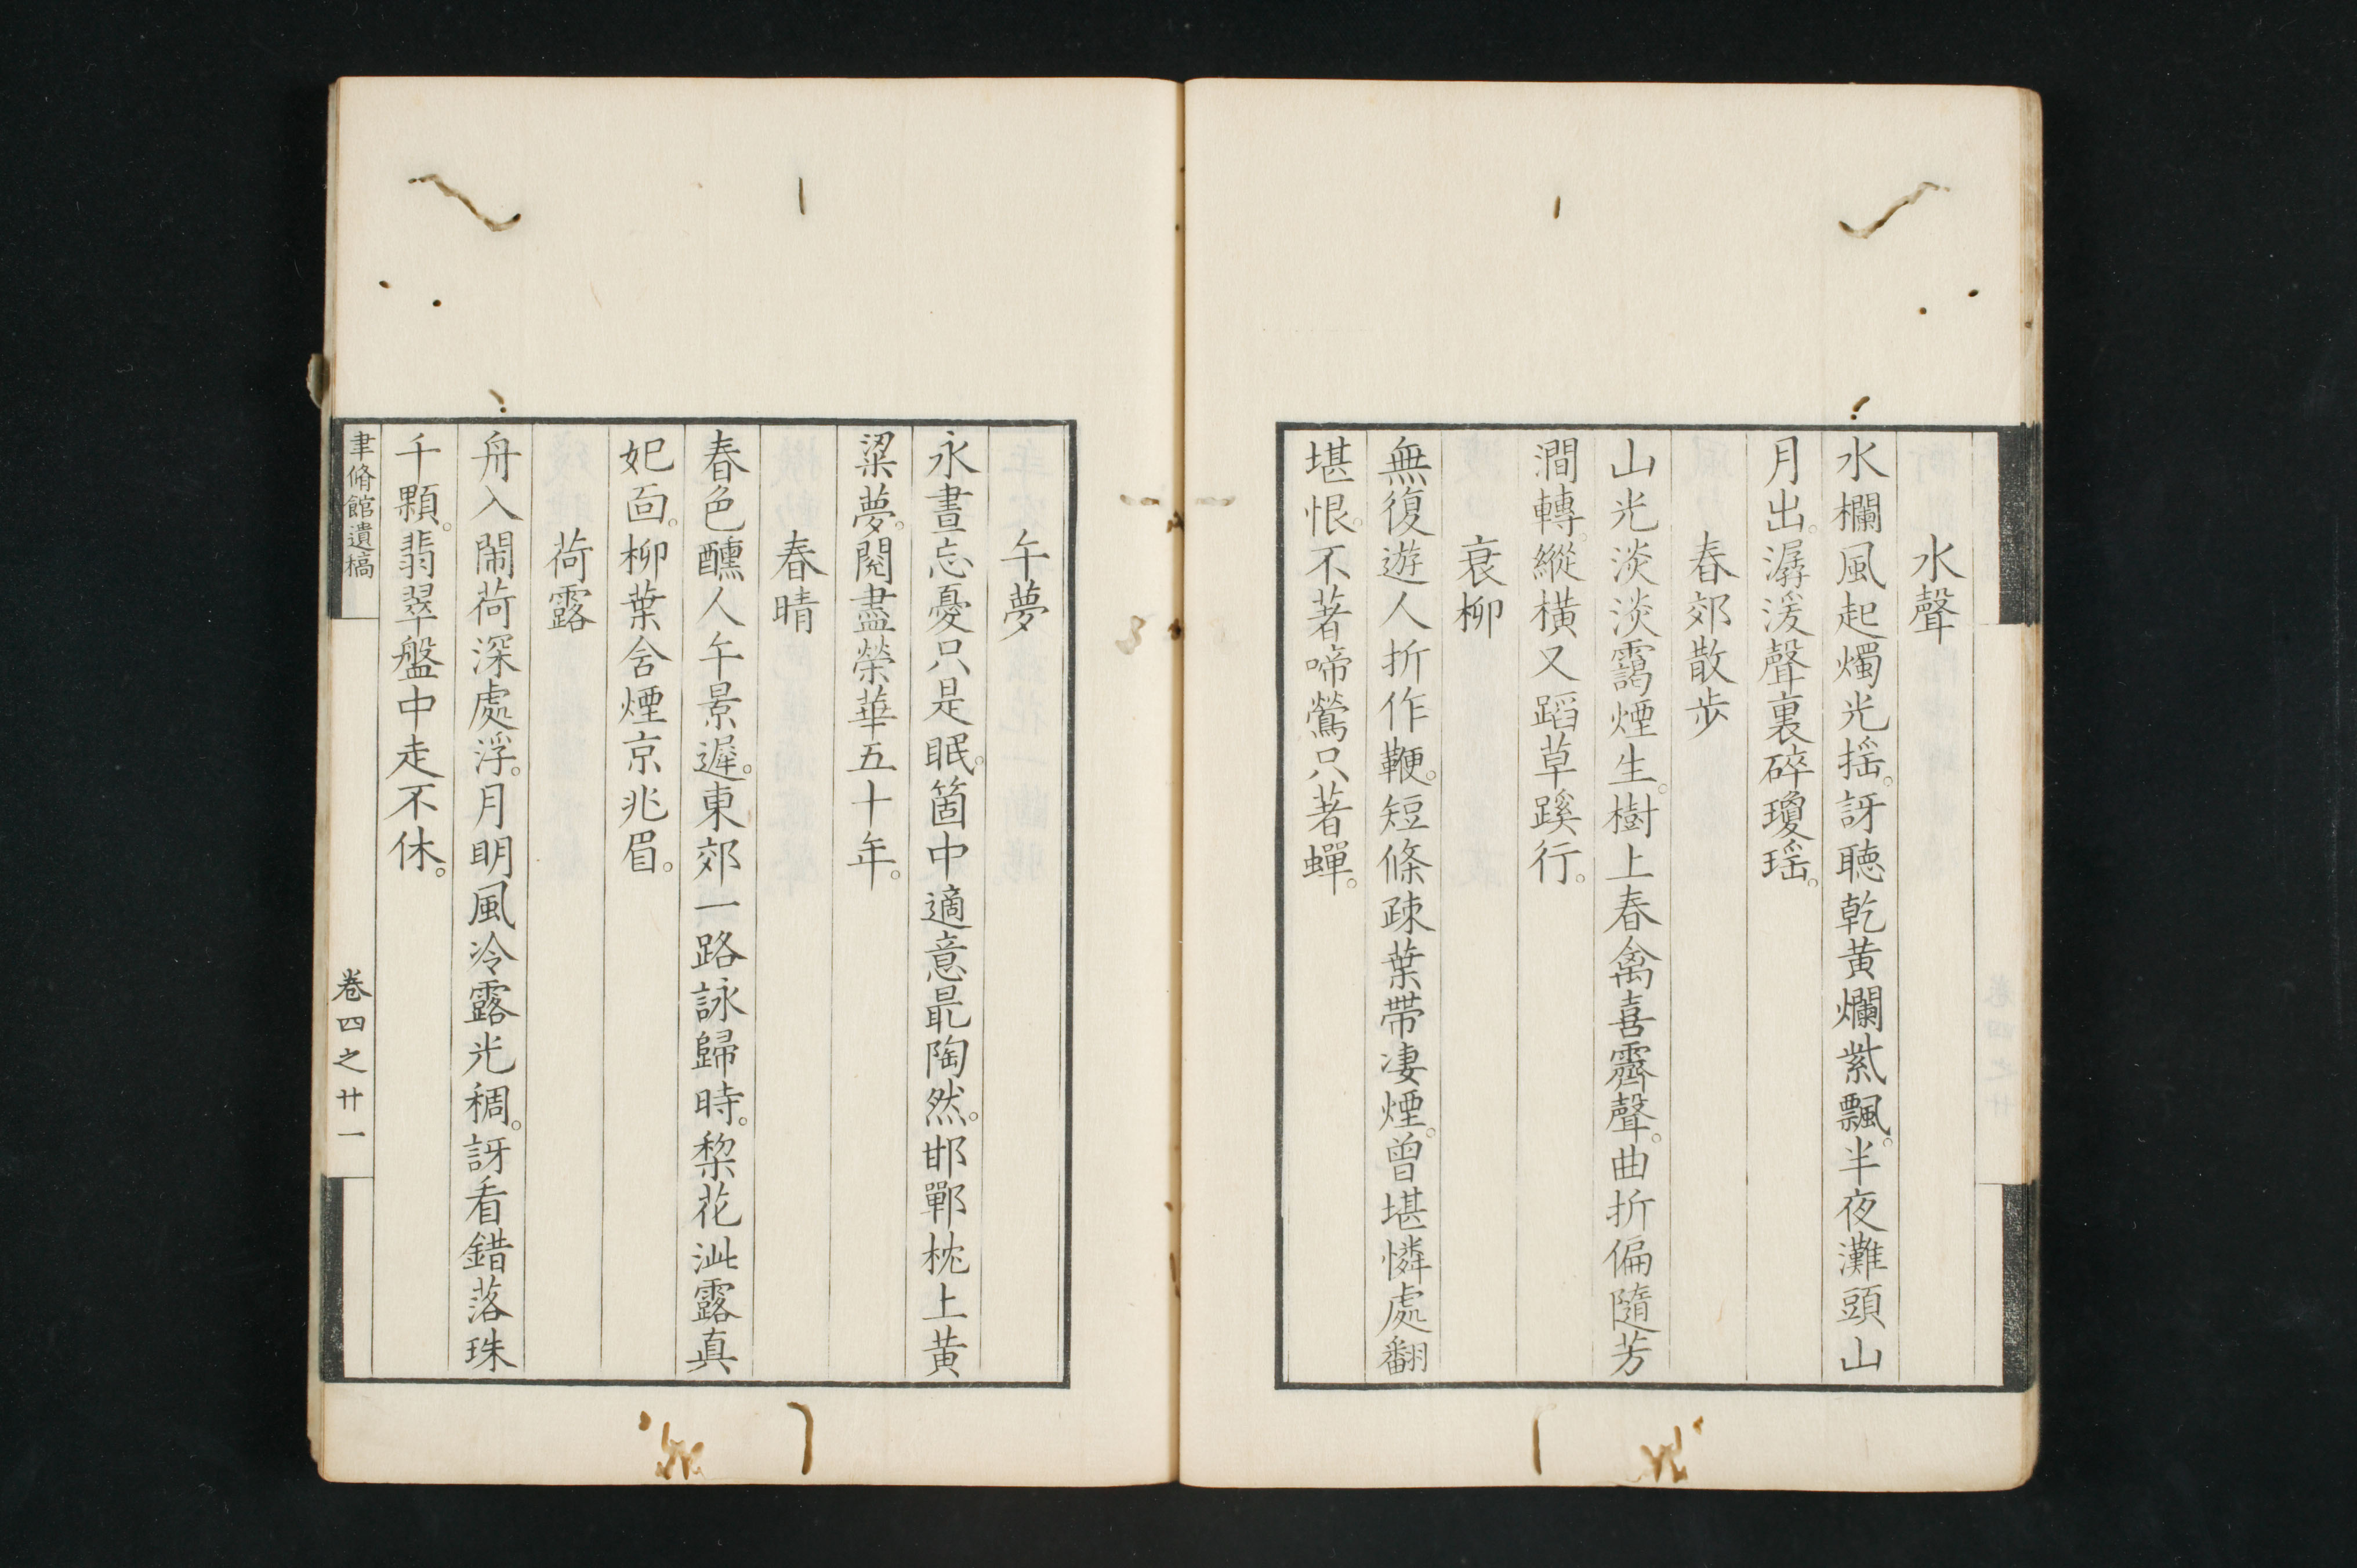 水聲
水欄風起燭光揺。訝聴乾黄爛紫飄。半夜灘頭山
月出。潺湲聲裏碎瓊瑶。
春郊散歩
山光淡淡靄煙生。樹上春禽喜霽聲。曲折偏隨芳
澗轉。縱横又蹈草蹊行。
衰柳
無復遊人折作鞭。短條疎葉帶凄煙。曾堪憐處翻
堪恨。不著啼鶯只著蟬。
午夢
永晝忘憂只是眠。箇中適意最陶然。邯鄲枕上黄
粱夢。閲盡榮華五十年。
春晴
春色醺人午景遲。東郊一路詠歸時。梨花泚露真
妃面。柳葉含煙京兆眉。
荷露
舟入鬧荷深處浮。月明風冷露光稠。訝看錯落珠
千顆。翡翠盤中走不休。
聿脩館遺稿
卷四之廿一